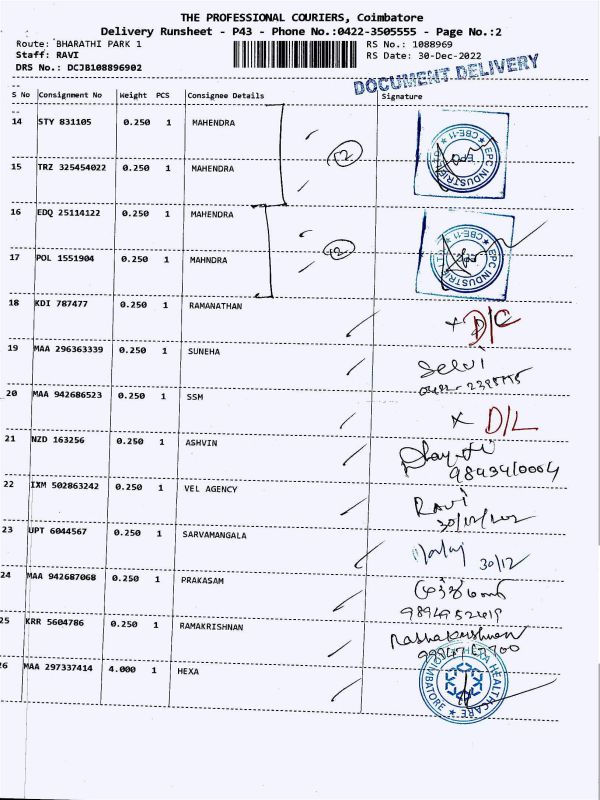 THE PROFESSIONAL COURIERS, Coimbatore
Delivery Runsheet - P43 - Phone No.:0422-3505555 - Page No.:2
Route: BHARATHI PARK 1 RS No.: 1088969
Staff: RAVI RS Date: 30-Dec-2022
DRS No.: DCJB108896902
DOCUMENT DELIVERY
S No Consignment No Weight PCS Consignee Details Signature
14 STY 831105 0.250 1 MAHENDRA
12
EPC INDUSTRIE CBE-11
15 TRZ 325454022 0.250 1 MAHENDRA
16 EDQ 25114122 0.250 1 MAHENDRA
12
EPC INDUSTRIE CBE-11
17 POL 1551904 0.250 1 MAHNDRA
18 KDI 787477 0.250 1 RAMANATHAN
x D/C
19 MAA 296363339 0.250 1 SUNEHA
Selvi
20 MAA 942686523 0.250 1 SSM
x D/L
21 NZD 163256 0.250 1 ASHVIN
22 IXM 502863242 0.250 1 VEL AGENCY
Ravi
23 UPT 6044567 0.250 1 SARVAMANGALA
30/12
24 MAA 942687068 0.250 1 PRAKASAM
25 KRR 5604786 0.250 1 RAMAKRISHNAN
26 MAA 297337414 4.000 1 HEXA
HEXA HEALTHCARE COIMBATORE